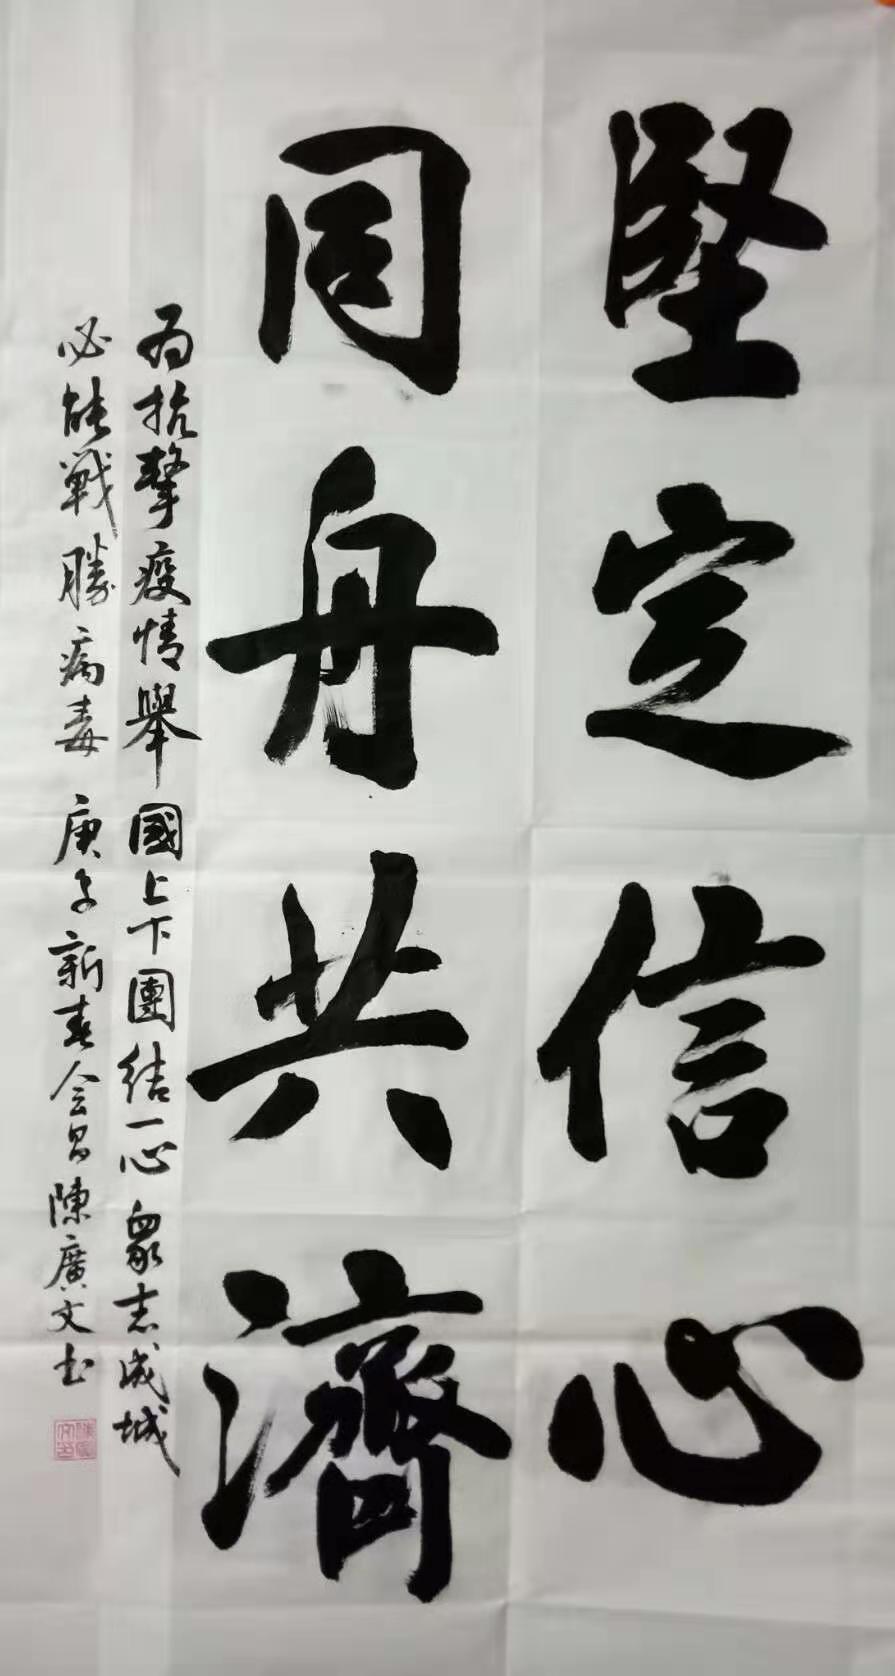 堅定信心
同舟共濟
为抗擊疫情舉國上下團结一心眾志成城
必能戰勝病毒庚子新春会昌陳廣文书